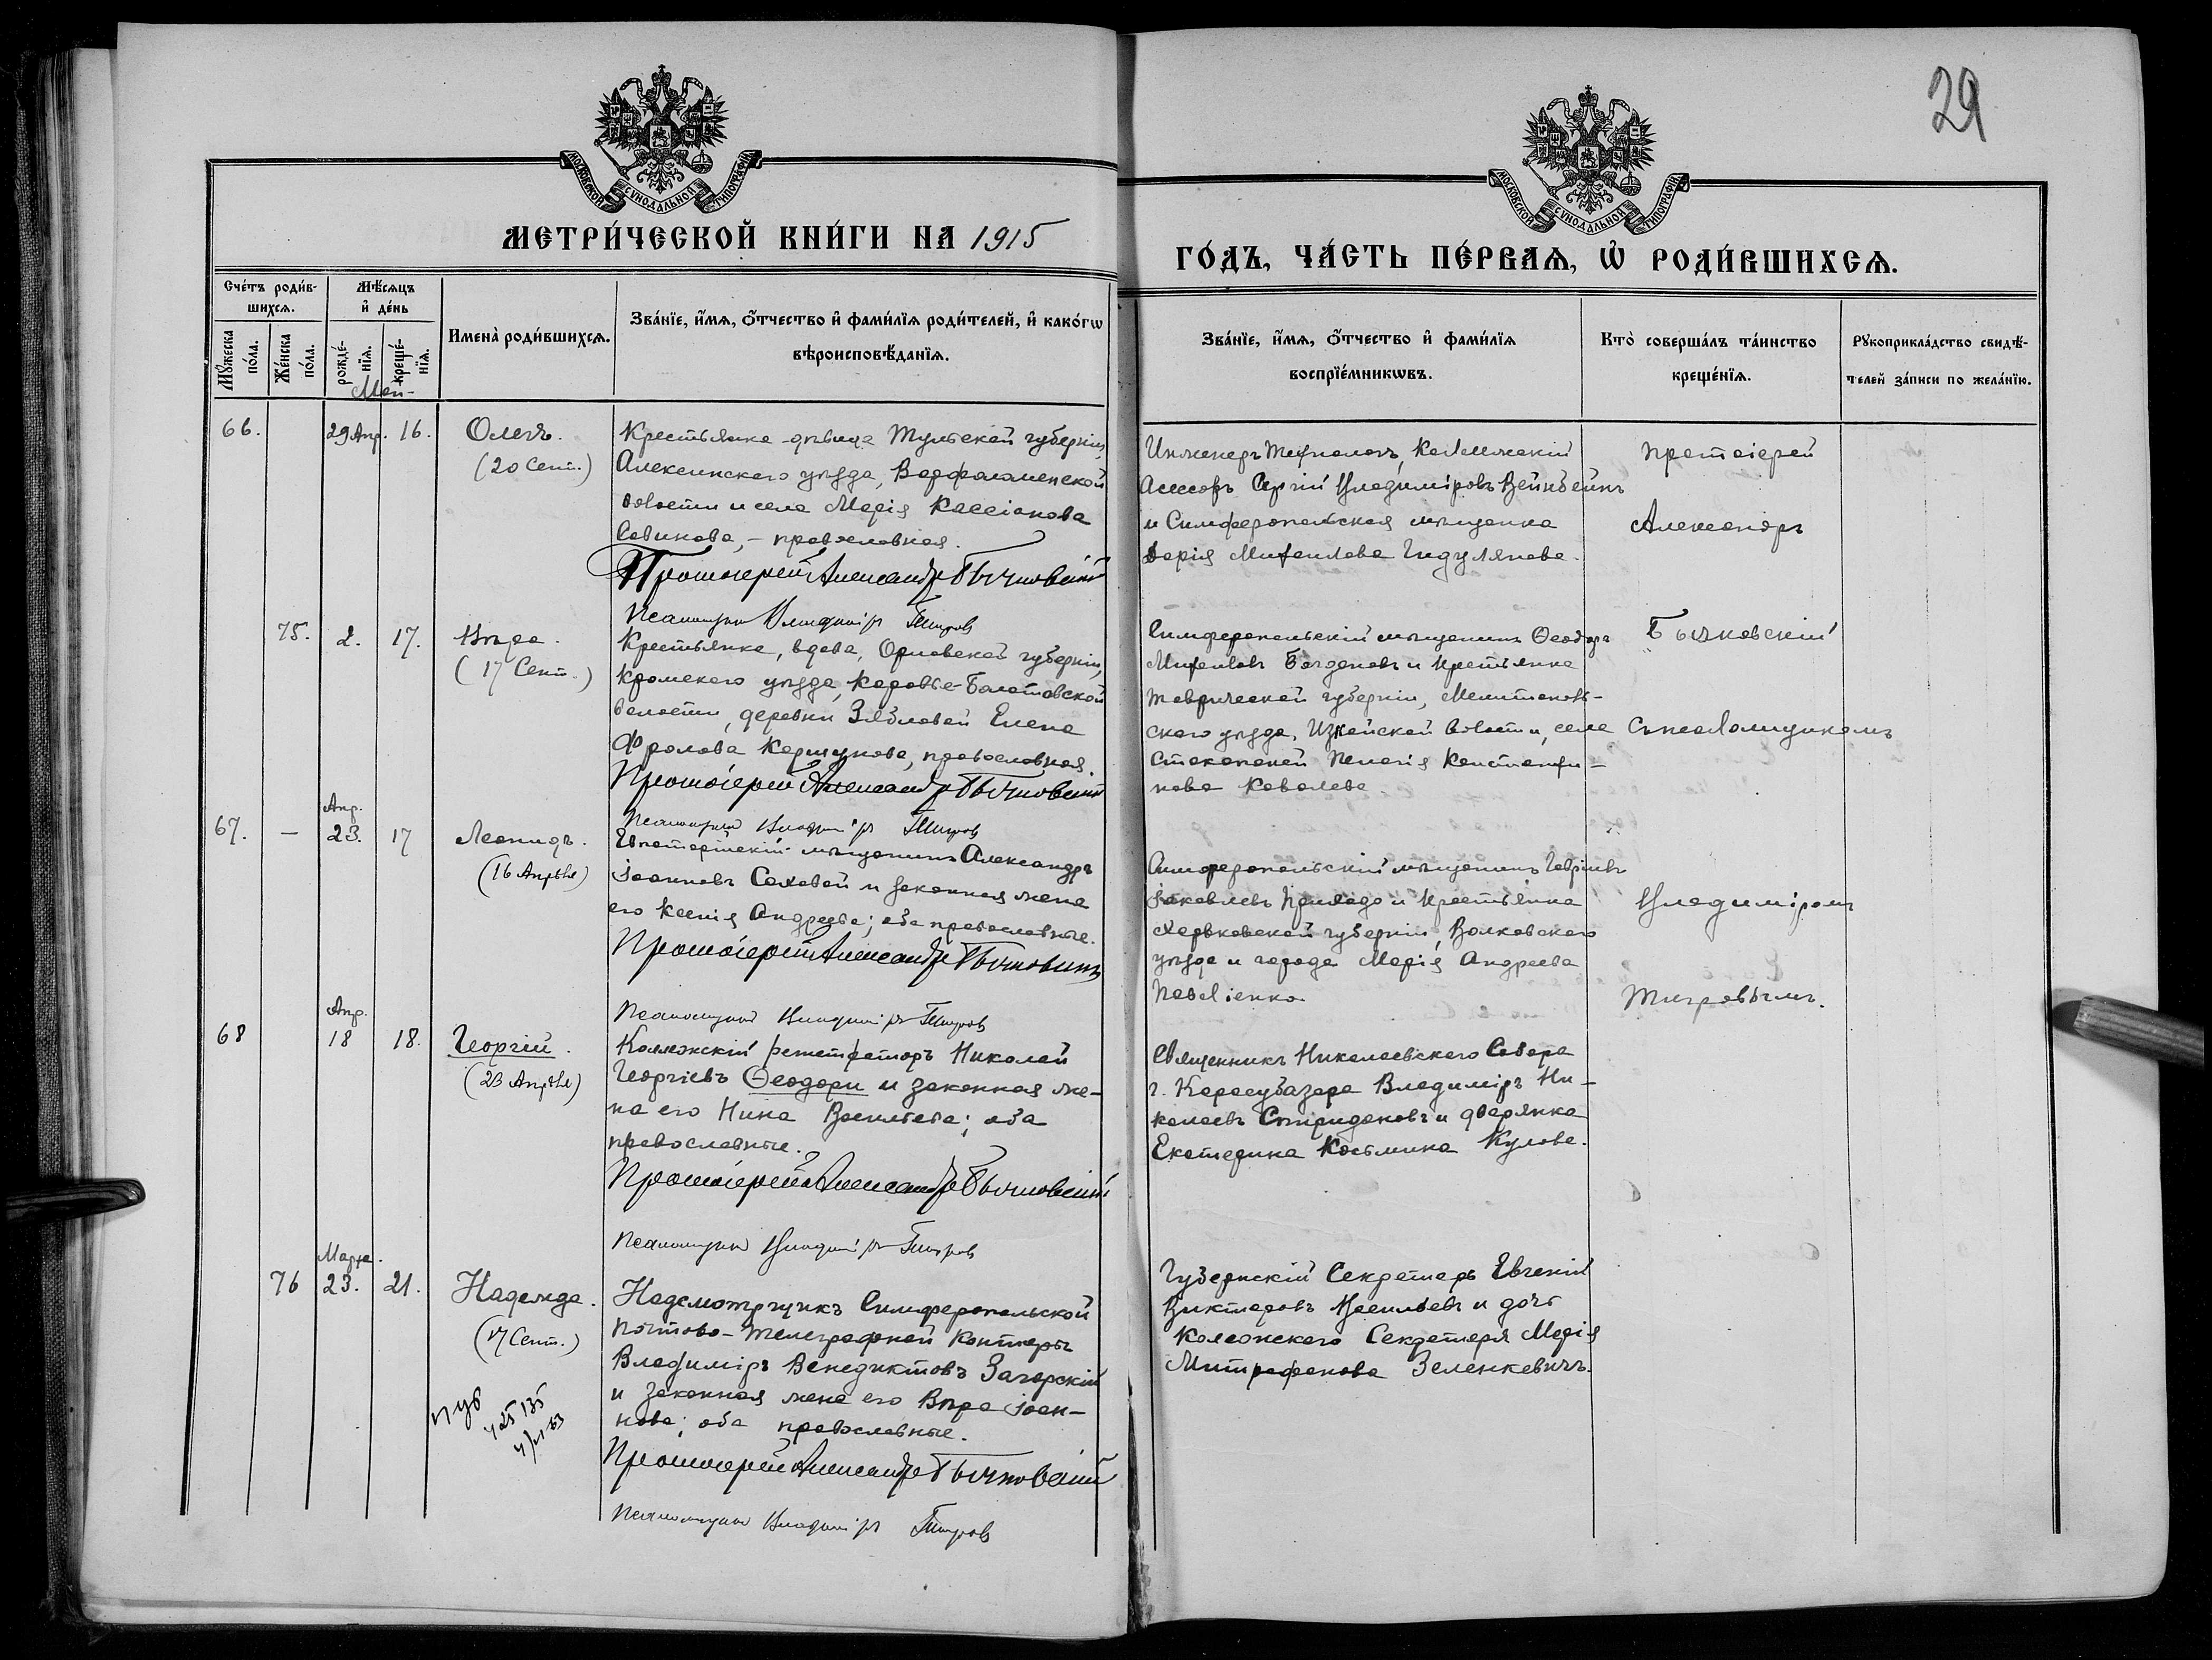 29
МОСКОВСКОЙ СѴНОДАЛЬНОЙ ТИПОГРАФІИ
МОСКОВСКОЙ СѴНОДАЛЬНОЙ ТИПОГРАФІИ
МЕТРИ́ЧЕСКОЙ КНИ́ГИ НА 1915
ГО́ДЪ, ЧА́СТЬ ПЕ́РВАѦ, Ѡ҆ РОДИ́ВШИХСѦ.
Сче́тъ роди́в-
шихсѧ.
Мѣ́сѧцъ
и҆ де́нь
Мꙋ́жеска по́ла.
Же́нска по́ла.
рожде́-нїѧ.
креще́-нїѧ.
Имена̀ роди́вшихсѧ.
Зва́нїе, и҆́мѧ, ѻ҆́тчество и҆ фами́лїѧ роди́телей, и҆ како́гѡ
вѣроисповѣ́данїѧ.
Зва́нїе, и҆́мѧ, ѻ҆́тчество и҆ фами́лїѧ
воспрїе́мникѡвъ.
Кто̀ соверша́лъ та́инство
креще́нїѧ.
Рꙋкоприкла́дство свидѣ́-
телей за́писи по жела́нїю.
Май
66. 29 Апр. 16. Олегъ.
(20 Сент.)
Крестьянка-дѣвица Тульской губерніи,
Алексинскаго уѣзда, Варфоломеевской
волости и села Марія Кассіанова
Савинова, – православная.
Протоіерей Александръ Бычковскій
Псаломщик Владиміръ Тигров
Инженеръ Технологъ, Коллежскій
Асессоръ Сергій Владиміровъ Вейнбейнъ
и Симферопольская мѣщанка
Дарія Михаилова Гидулянова.
протоіерей
Александръ
Бычковскій
съ псаломщикомъ
Владиміромъ
Тигровымъ.
75. 2. 17. Вѣра.
(17 Сент.)
Крестьянка, вдова, Орловской губерніи,
Кромскаго уѣзда, Коровье-Болотовской
волости, деревни Зябловой Елена
Фролова Коршунова, православная.
Протоіерей Александръ Бычковскій
Псаломщик Владиміръ Тигров
Симферопольскій мѣщанинъ Ѳеодоръ
Михаиловъ Богдановъ и крестьянка
Таврической губерніи, Мелитополь-
скаго уѣзда, волости, села
Пелагія Константи-
нова Ковалева.
67. – Апр. 23. 17 Леонидъ.
(16 Апрѣля)
Евпаторійскій мѣщанинъ Александръ
Іоанновъ Соховой и законная жена
его Ксенія Андреева; оба православные.
Протоіерей Александръ Бычковскій
Псаломщик Владиміръ Тигров
Симферопольскій мѣщанинъ Гавріилъ
Іаковлевъ и крестьянка
Харьковской губерніи, Волковскаго
уѣзда и города Марія Андреева
Павліенко.
68 Апр. 18 18. Георгій.
(23 Апрѣля)
Коллежскій регистраторъ Николай
Георгіевъ Ѳеодори и законная же-
на его Нина Васильева; оба
православные.
Протоіерей Александръ Бычковскій
Псаломщик Владиміръ Тигров
Священникъ Николаевскаго Собора
г. Карасубазара Владиміръ Ни-
колаевъ Спиридоновъ и дворянка
Екатерина Косьмина Кулова.
76 Марта. 23. 21. Надежда.
(17 Сент.)
Надсмотрщикъ Симферопольской
Почтово-Телеграфной Конторы
Владиміръ Венедиктовъ Загорскій
и законная жена его Вѣра Іоан-
нова; оба православные.
Протоіерей Александръ Бычковскій
Псаломщик Владиміръ Тигров
Губернскій Секретарь Евгеній
Викторовъ Васильевъ и дочь
Коллежскаго Секретаря Марія
Митрофанова Зеленкевичъ.